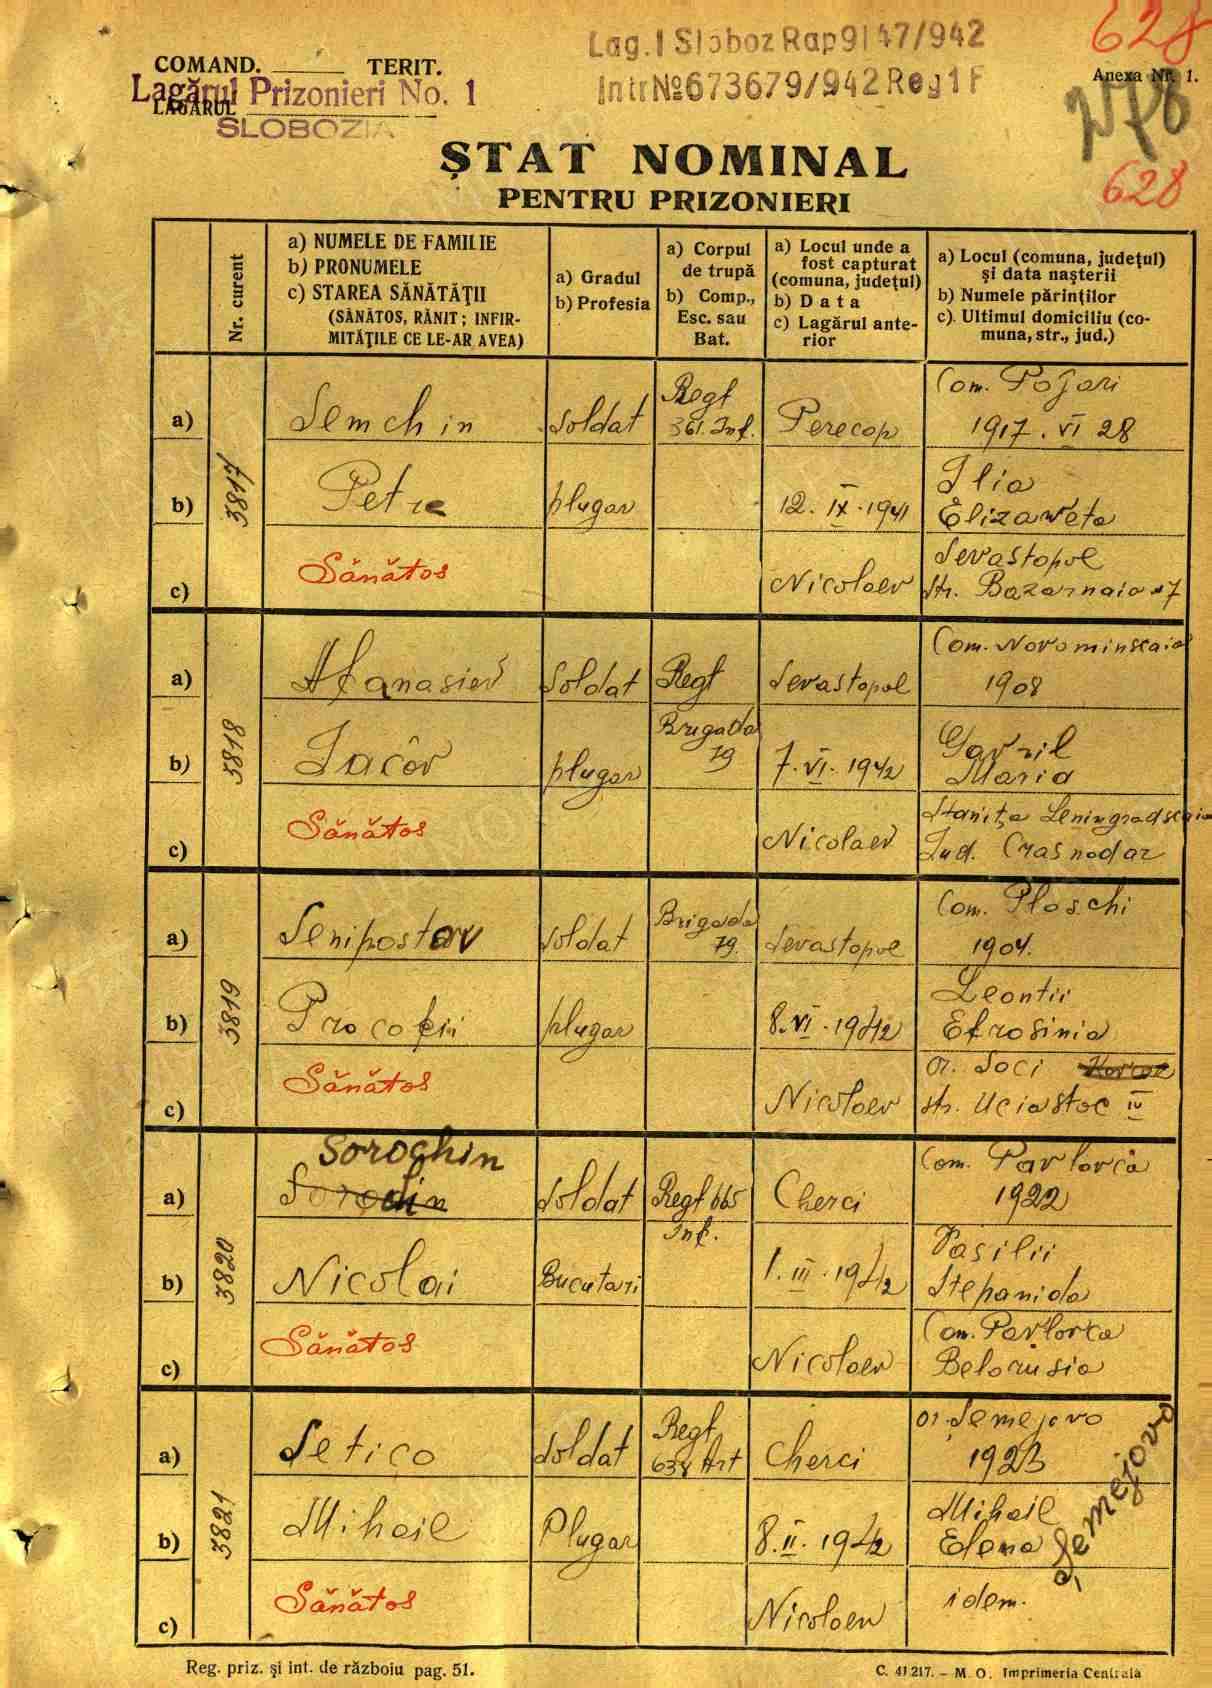 628
Lag. I Sloboz Rap 9147/942
Intr № 673679/942 Reg 1 F
COMAND. TERIT.
Lagărul Prizonieri No. 1
LAGĂRUL
SLOBOZIA
Anexa Nr. 1.
278
628
ȘTAT NOMINAL
PENTRU PRIZONIERI
Nr. curent
a) NUMELE DE FAMILIE
b) PRONUMELE
c) STAREA SĂNĂTĂȚII
(SĂNĂTOS, RĂNIT; INFIR-
MITĂȚILE CE LE-AR AVEA)
a) Gradul
b) Profesia
a) Corpul
de trupă
b) Comp.,
Esc. sau
Bat.
a) Locul unde a
fost capturat
(comuna, județul)
b) Data
c) Lagărul ante-
rior
a) Locul (comuna, județul)
și data nașterii
b) Numele părinților
c) Ultimul domiciliu (co-
muna, str., jud.)
3817
a) Semchin soldat Regt 361. Inf. Perecop Com. Pojari
1917. VI 28
b) Petre plugar 12. IX. 1941 Ilia
Elizaweta
c) Sănătos Nicolaev Sevastopol
str. Bazarnaia 17
3818
a) Afanasiev soldat Regt Sevastopol Com. Novominscaia
1908
b) Iacov plugar Brigada 79 7. VI. 1942 Gavril
Maria
c) Sănătos Nicolaev Stanița Leningradscaia
Jud. Crasnodar
3819
a) Senipostov soldat Brigada 79. Sevastopol Com. Ploschi
1904.
b) Procofii plugar 8. VI. 1942 Leontii
Efrosinia
c) Sănătos Nicolaev or. Soci
str. Uciastoc IV
3820
Sorochin
a) soldat Regt 665 Inf. Cherci Com. Pavlovca
1922
b) Nicolai Bucutari 1. III. 1942 Vasilii
Stepanida
c) Sănătos Nicolaev Com. Pavlovca
Belorusia
3821
a) Setico soldat Regt 638 Art Cherci or. Șemejovo
1923
b) Mihail Plugar 8. II. 1942 Mihail
Elena
Șemejovo
c) Sănătos Nicolaev idem.
Reg. priz. și int. de războiu pag. 51.
C. 41.217. – M. O. Imprimeria Centrala